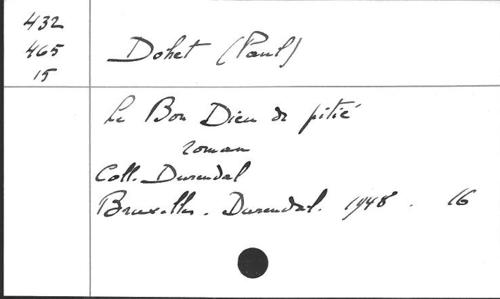 432
465
15
Dohet (Paul)
Le Bon Dieu de pitié
roman
Coll. Durendal
Bruxelles. Durendal. 1948. 16